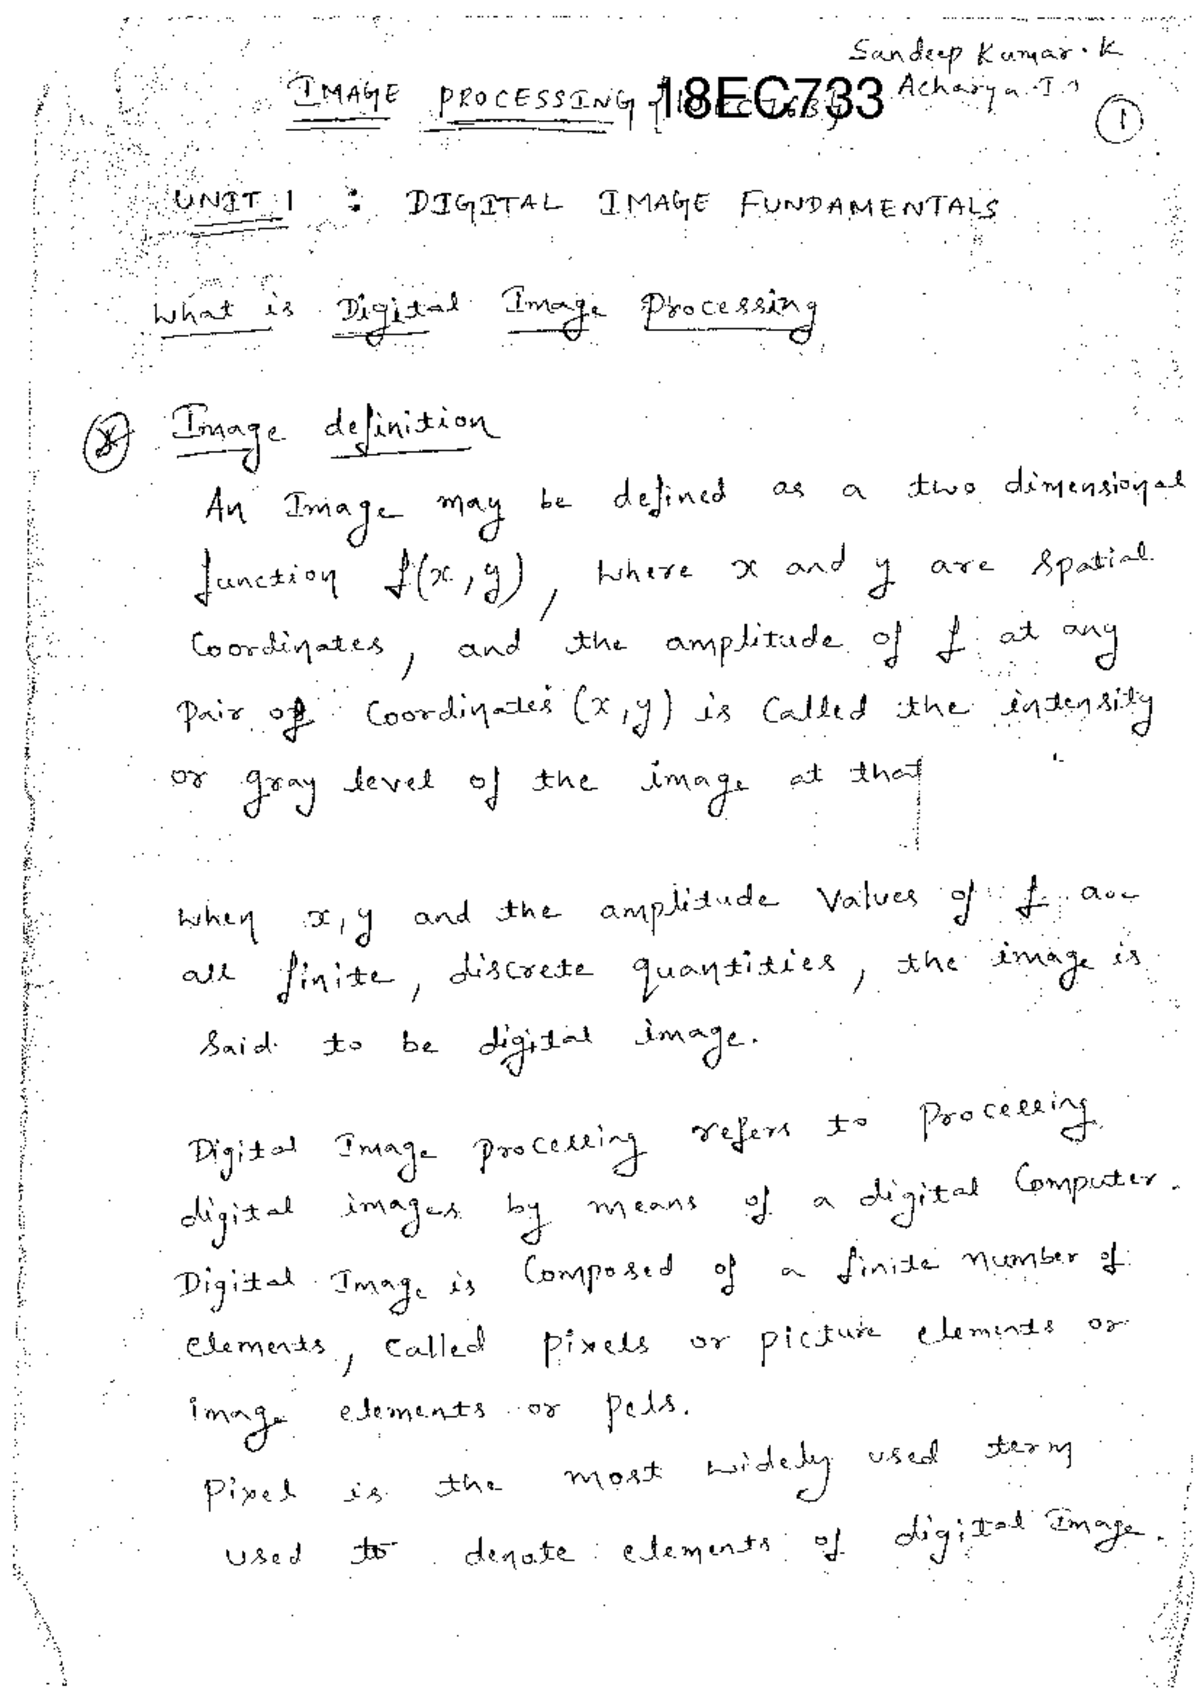 Sandeep Kumar. K
IMAGE PROCESSING 18EC733 Acharya
1
UNIT 1 : DIGITAL IMAGE FUNDAMENTALS
What is Digital Image Processing
Image definition
An Image may be defined as a two dimensional
function f(x,y), where x and y are spatial
Coordinates, and the amplitude of f at any
Pair of Coordinates (x,y) is Called the intensity
or gray level of the image at that
When x,y and the amplitude Values of f are
all finite, discrete quantities, the image is
Said to be digital image.
Digital Image processing refers to processing
digital images by means of a digital Computer.
Digital Image is Composed of a finite number of
elements, called pixels or picture elements or
image elements or pels.
Pixel is the most widely used term
used to denote elements of digital Image.